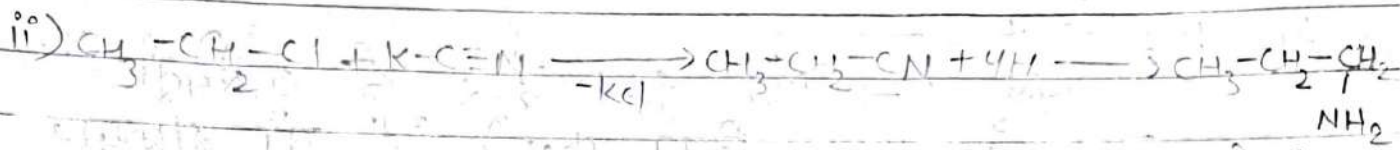 ii) CH3-CH2-Cl + K-C≡N ⟶ CH3-CH2-CN + 4H ⟶ CH3-CH2-CH2
-KCl
NH2